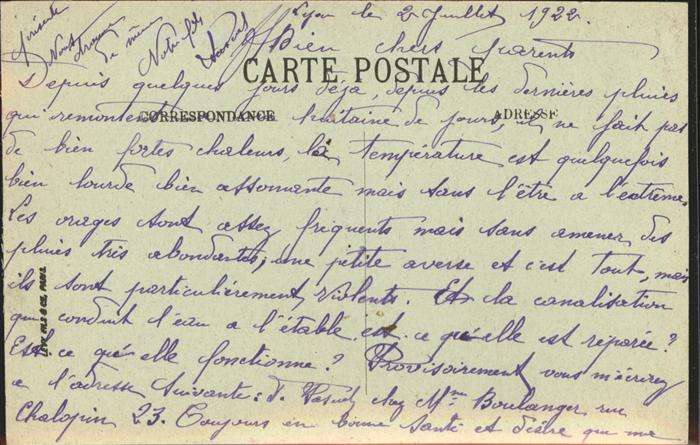 Lyon le 2 Juillet 1922.
Bien chers parents
CARTE POSTALE
CORRESPONDANCE
ADRESSE
Depuis quelques jours déja, depuis les dernières pluies
qui remontent huitaine de jours, il ne fait pas
de bien fortes chaleurs, la température est quelquefois
bien lourde bien assomante mais sans l'être a l'extrême.
Les orages sont assez fréquents mais sans amener des
pluies très abondantes, une petite averse et c'est tout, mais
ils sont particulièrement violents. Et la canalisation
qui conduit l'eau a l'étable est-ce qu'elle est réparée?
Est ce qu'elle fonctionne? Provisoirement vous m'écrirez
a l'adresse suivante: chez Mme Boulanger rue
Chalopin 23. Toujours en bonne santé et désire que ma
présente
vous trouve
de même
Votre fils